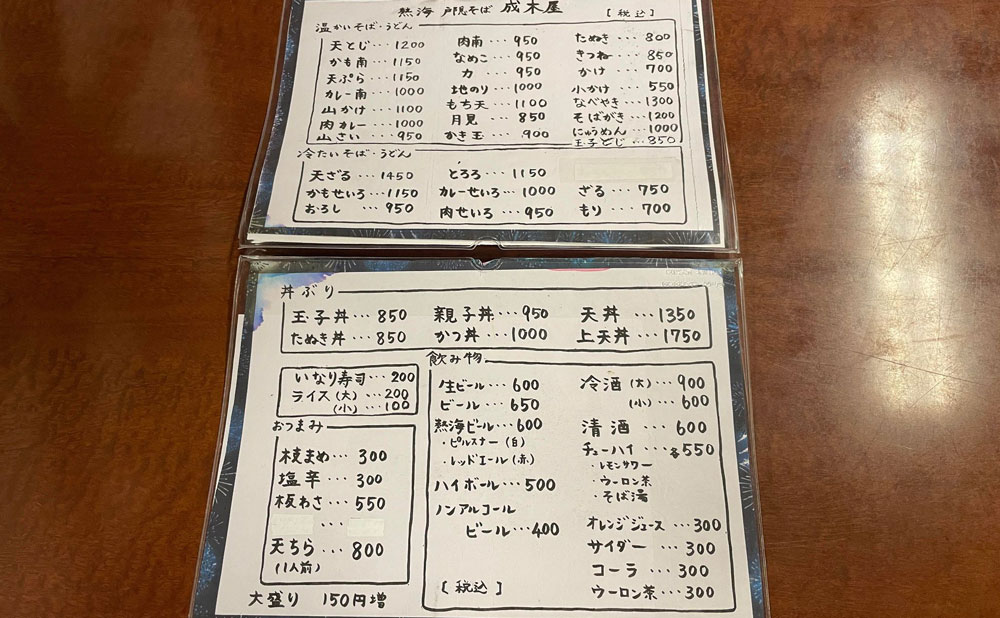 熱海 戸隠そば 成木屋 [税込]
温かいそば・うどん
天とじ…1200
かも南…1150
天ぷら…1150
カレー南…1000
山かけ…1100
肉カレー…1000
山さい…950
肉南…950
なめこ…950
力…950
地のり…1000
もち天…1100
月見…850
かき玉…900
たぬき…800
きつね…850
かけ…700
小かけ…550
なべやき…1300
そばがき…1200
にゅうめん…1000
玉子とじ…850
冷たいそば・うどん
天ざる…1450
かもせいろ…1150
おろし…950
とろろ…1150
カレーせいろ…1000
肉せいろ…950
ざる…750
もり…700
丼ぶり
玉子丼…850
たぬき丼…850
親子丼…950
かつ丼…1000
天丼…1350
上天丼…1750
いなり寿司…200
ライス(大)…200
(小)…100
おつまみ
枝まめ…300
塩辛…300
板わさ…550
…
天ちら…800
(1人前)
大盛り 150円増
飲み物
生ビール…600
ビール…650
熱海ビール…600
・ピルスナー(白)
・レッドエール(赤)
ハイボール…500
ノンアルコール
ビール…400
[税込]
冷酒(大)…900
(小)…600
清酒…600
チューハイ…各550
・レモンサワー
・ウーロン茶
・そば湯
オレンジジュース…300
サイダー…300
コーラ…300
ウーロン茶…300